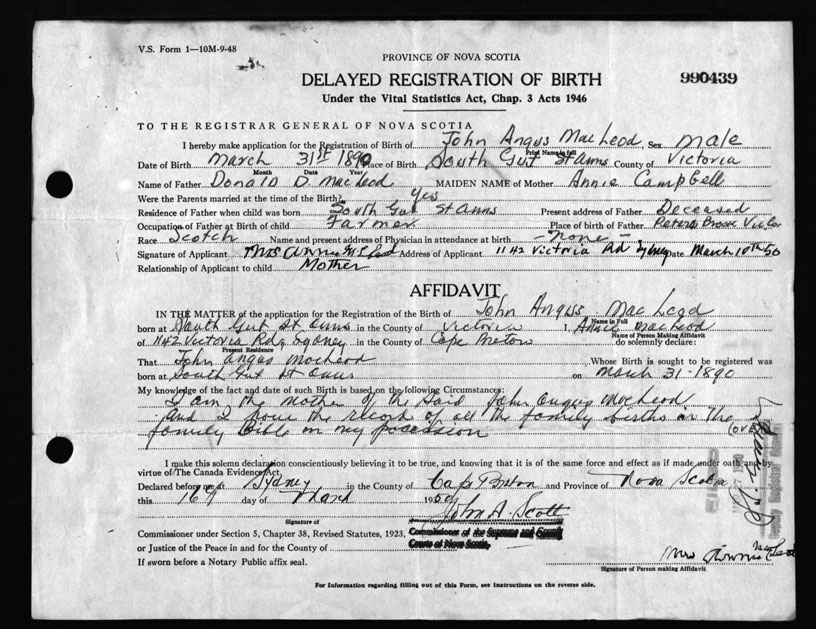 V.S. Form 1—10M-9-48
PROVINCE OF NOVA SCOTIA
DELAYED REGISTRATION OF BIRTH
990439
Under the Vital Statistics Act, Chap. 3 Acts 1946
TO THE REGISTRAR GENERAL OF NOVA SCOTIA
I hereby make application for the Registration of Birth of John Angus MacLeod Sex male
Print Name in full
Date of Birth March 31st 1890 Place of Birth South Gut St Anns County of Victoria
Month Date Year
Name of Father Donald D. MacLeod MAIDEN NAME of Mother Annie Campbell
Were the Parents married at the time of Birth? Yes
Residence of Father when child was born South Gut St Anns Present address of Father Deceased
Occupation of Father at Birth of child Farmer Place of birth of Father
Race Scotch Name and present address of Physician in attendance at birth - none -
Signature of Applicant Mrs Annie Address of Applicant 1142 Victoria Rd Sydney Date March 10th 50
Relationship of Applicant to child Mother
AFFIDAVIT
IN THE MATTER of the application for the Registration of the Birth of John Angus MacLeod
Name in Full
born at South Gut St Anns in the County of Victoria I, Annie MacLeod
Name of Person Making Affidavit
of 1142 Victoria Rd, Sydney in the County of Cape Breton do solemnly declare:
Present Residence
That John Angus MacLeod , Whose Birth is sought to be registered was
born at South Gut St Anns on March 31-1890
My knowledge of the fact and date of such Birth is based on the following Circumstances:
I am the mother of the said John Angus MacLeod
and I have the record of all the family births in the
family Bible in my possession
(OVER)
I make this solemn declaration conscientiously believing it to be true, and knowing that it is of the same force and effect as if made under oath and by
virtue of The Canada Evidence Act,
Declared before me at Sydney in the County of Cape Breton and Province of Nova Scotia
this 16 day of March 1950
John A. Scott
Signature of
Commissioner under Section 5, Chapter 38, Revised Statutes, 1923, Commissioner of the Supreme and County
or Justice of the Peace in and for the County of Courts of Nova Scotia.
Mrs Annie MacLeod
If sworn before a Notary Public affix seal.
Signature of Person making Affidavit
For Information regarding filling out of this Form, see Instructions on the reverse side.